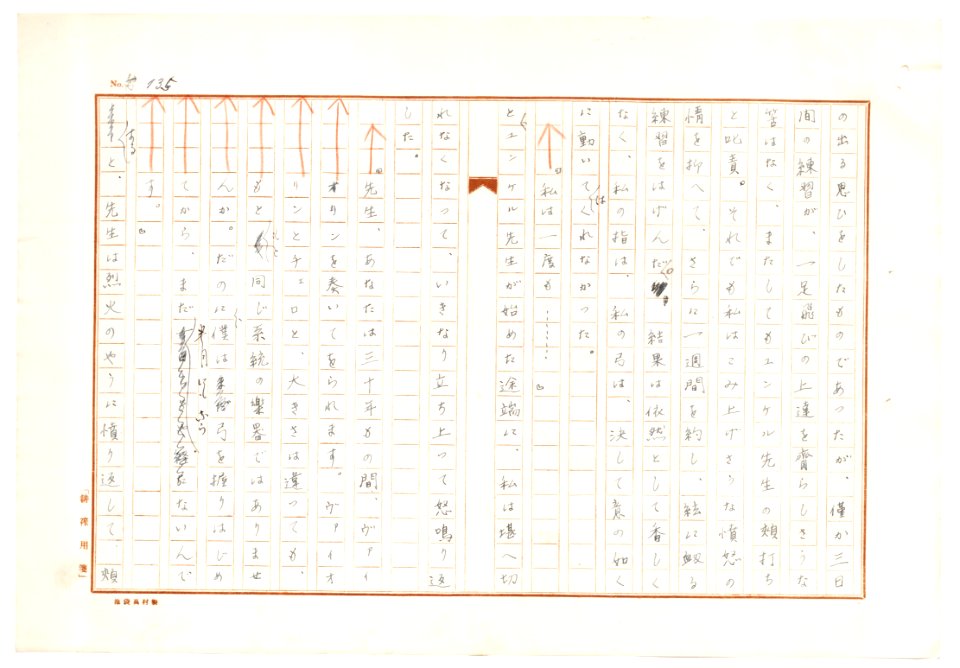 No. 135
の出る思ひをしたものであつたが、僅か三日
間の練習が、一足飛びの上達を齎らしさうな
筈はなく、またしてもエンケル先生の頰打ち
と叱責。それでも私はこみ上げさうな憤怒の
情を抑へて、さらに一週間を約し、絃に齧る
練習をはげんだが、結果は依然として香しく
なく、私の指は、私の弓は、決して意の如く
に動いてはくれなかつた。
「私は一度も……」
と、エンケル先生が始めた途端に、私は堪へ切
れなくなつて、いきなり立ち上つて怒鳴り返
した。
「先生、あなたは三十年もの間、ヴァイ
オリンを奏いてをられます。ヴァイオ
リンとチェロと、大きさは違つても、
もともと同じ系統の楽器ではありませ
んか。だのに、僕は弓を握りはじめ
てから、まだ半月にしかならないんで
す。」
すると、先生は烈火のやうに憤り返して、頰
「耕裡用箋」